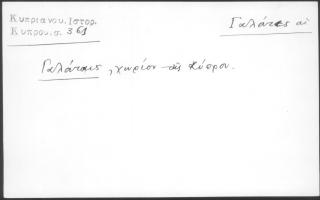 Κυπριανοῦ, Ἱστορ.
Κύπρου, σ. 361
Γαλάτες αἱ
Γαλάταις, χωρίον τῆς Κύπρου.